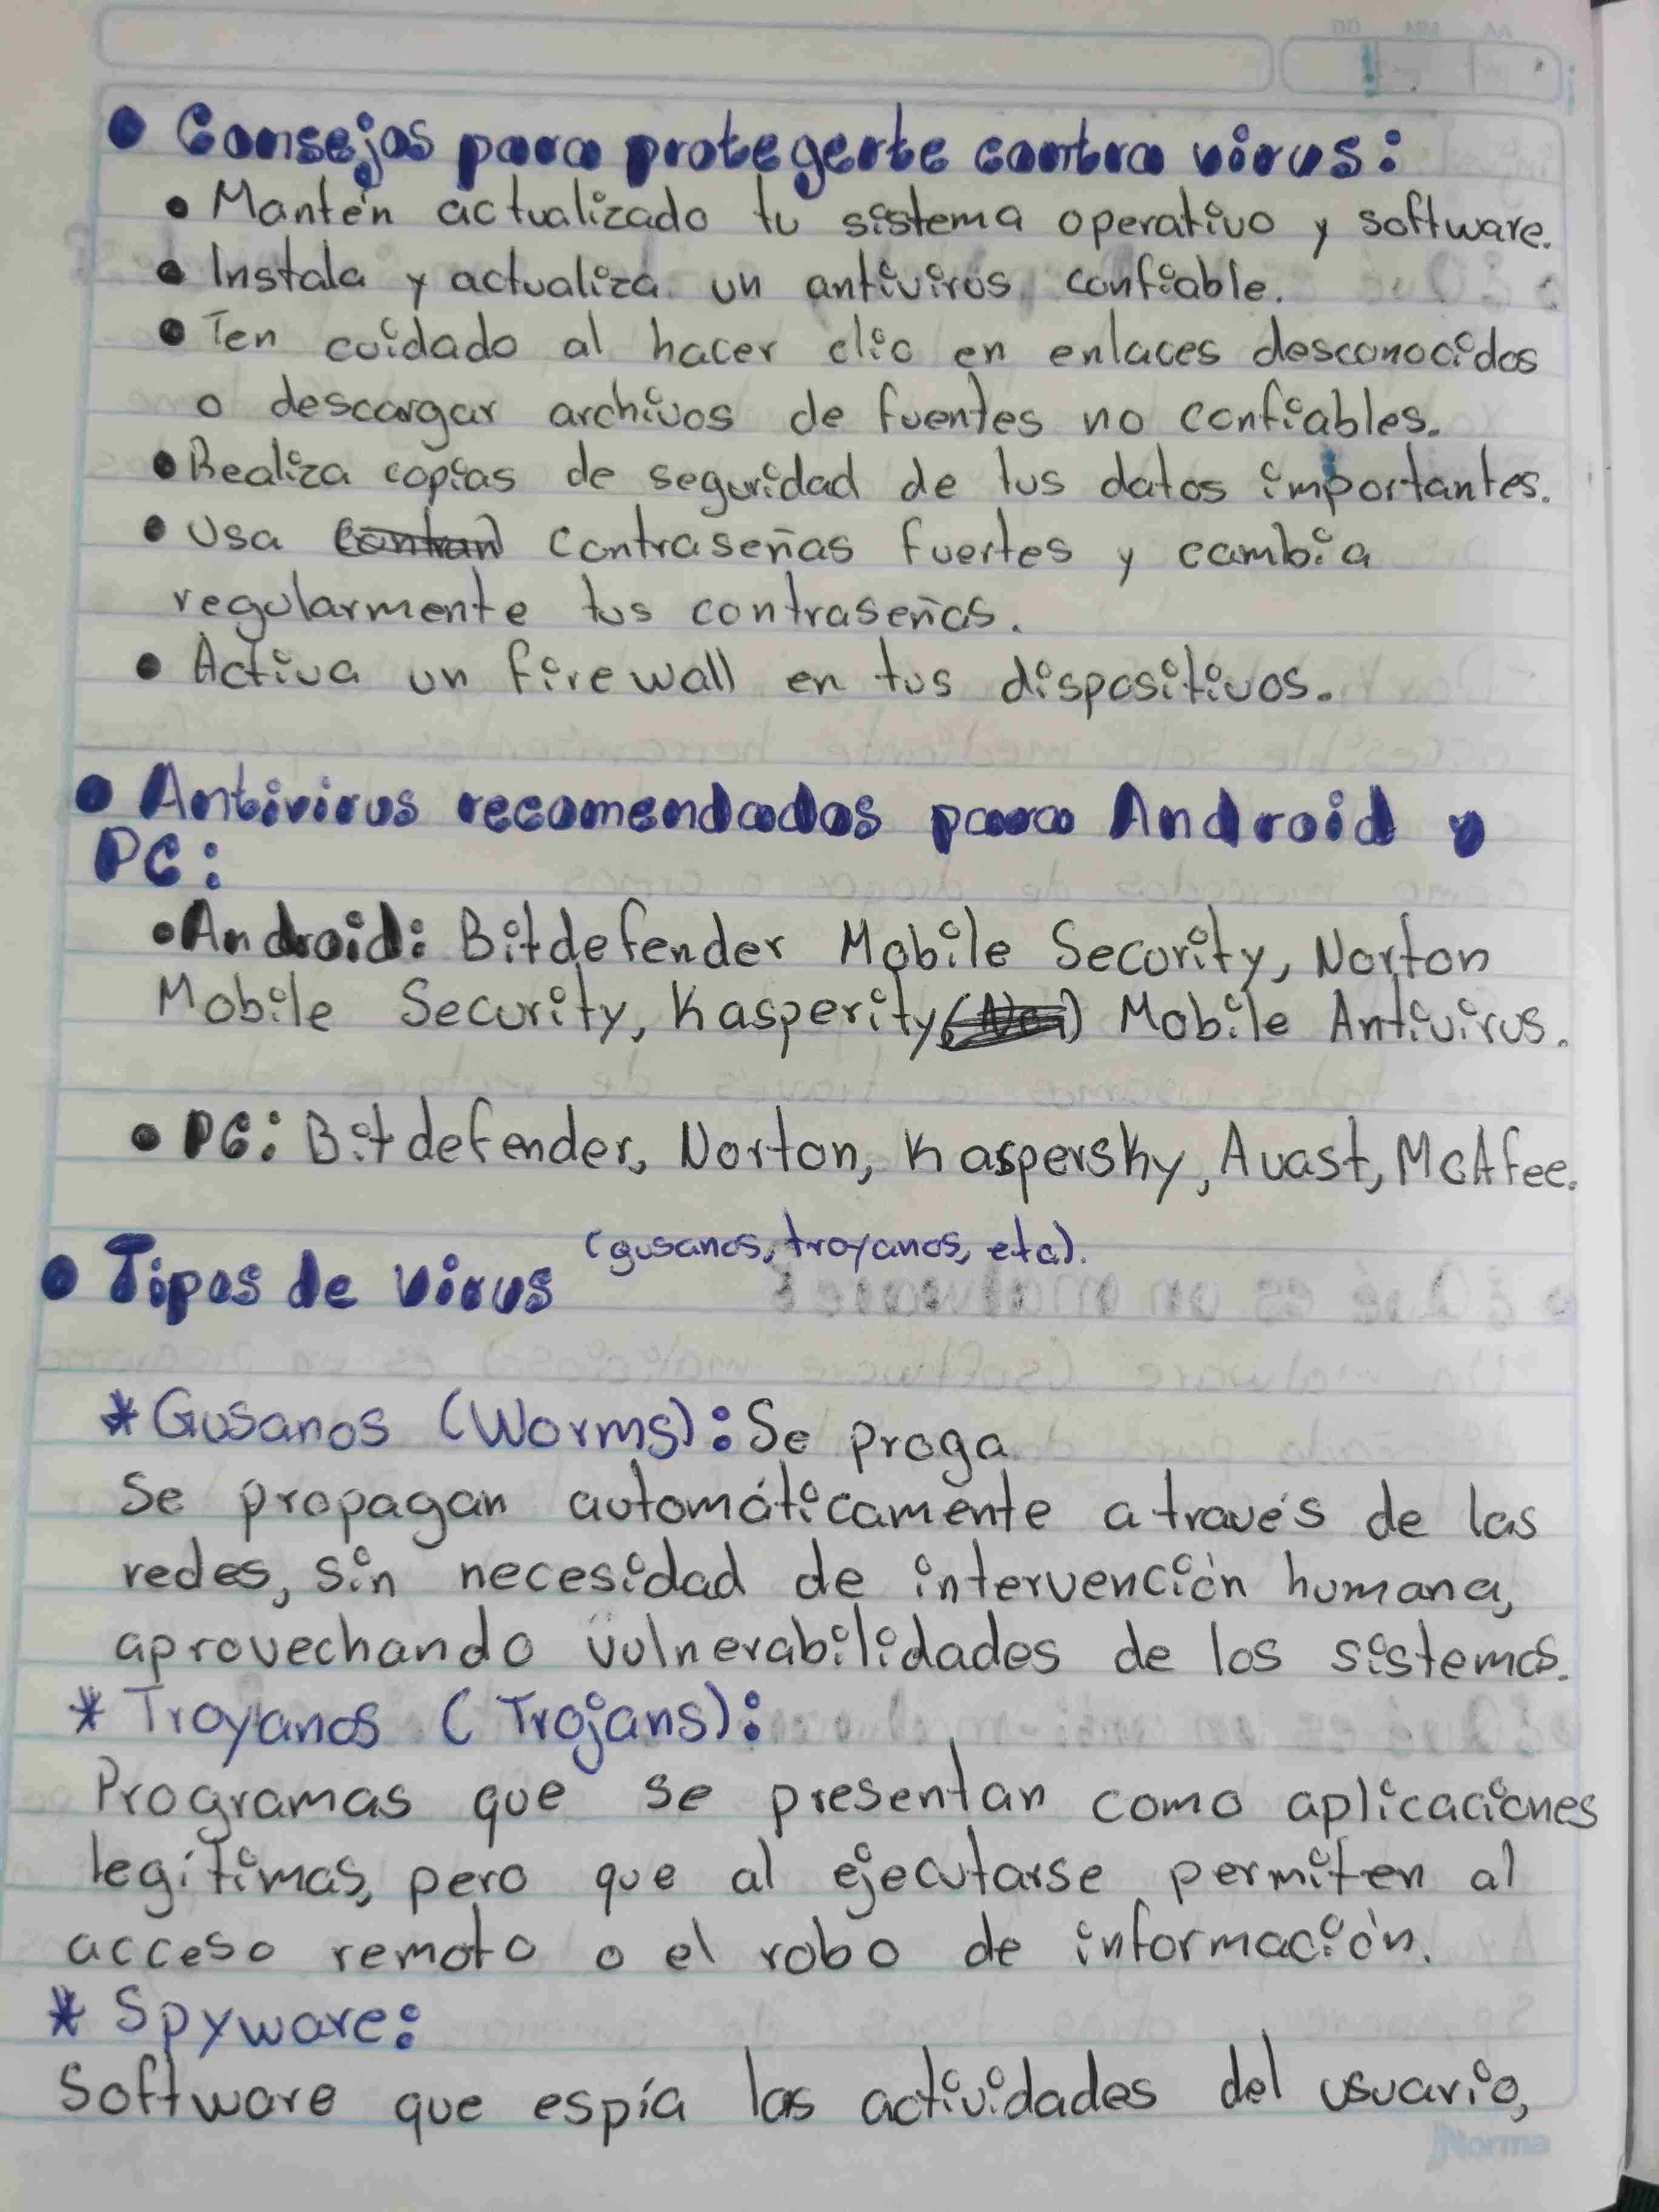 • Consejos para protegerte contra virus:
• Mantén actualizado tu sistema operativo y software.
• Instala y actualiza un antivirus confiable.
• Ten cuidado al hacer clic en enlaces desconocidos
o descargar archivos de fuentes no confiables.
• Realiza copias de seguridad de tus datos importantes.
• Usa contraseñas fuertes y cambia
regularmente tus contraseñas.
• Activa un firewall en tus dispositivos.
• Antivirus recomendados para Android y
PC:
• Android: Bitdefender Mobile Security, Norton
Mobile Security, Kasperity, Mobile Antivirus.
• PC: Bitdefender, Norton, Kaspersky, Avast, McAfee.
(gusanos, troyanos, etc).
• Tipos de virus
* Gusanos (Worms): Se proga
Se propagan automáticamente através de las
redes, sin necesidad de intervención humana,
aprovechando vulnerabilidades de los sistemas.
* Troyanos (Trojans):
Programas que se presentan como aplicaciones
legítimas, pero que al ejecutarse permiten al
acceso remoto o el robo de información.
* Spyware:
Software que espía las actividades del usuario,
Norma